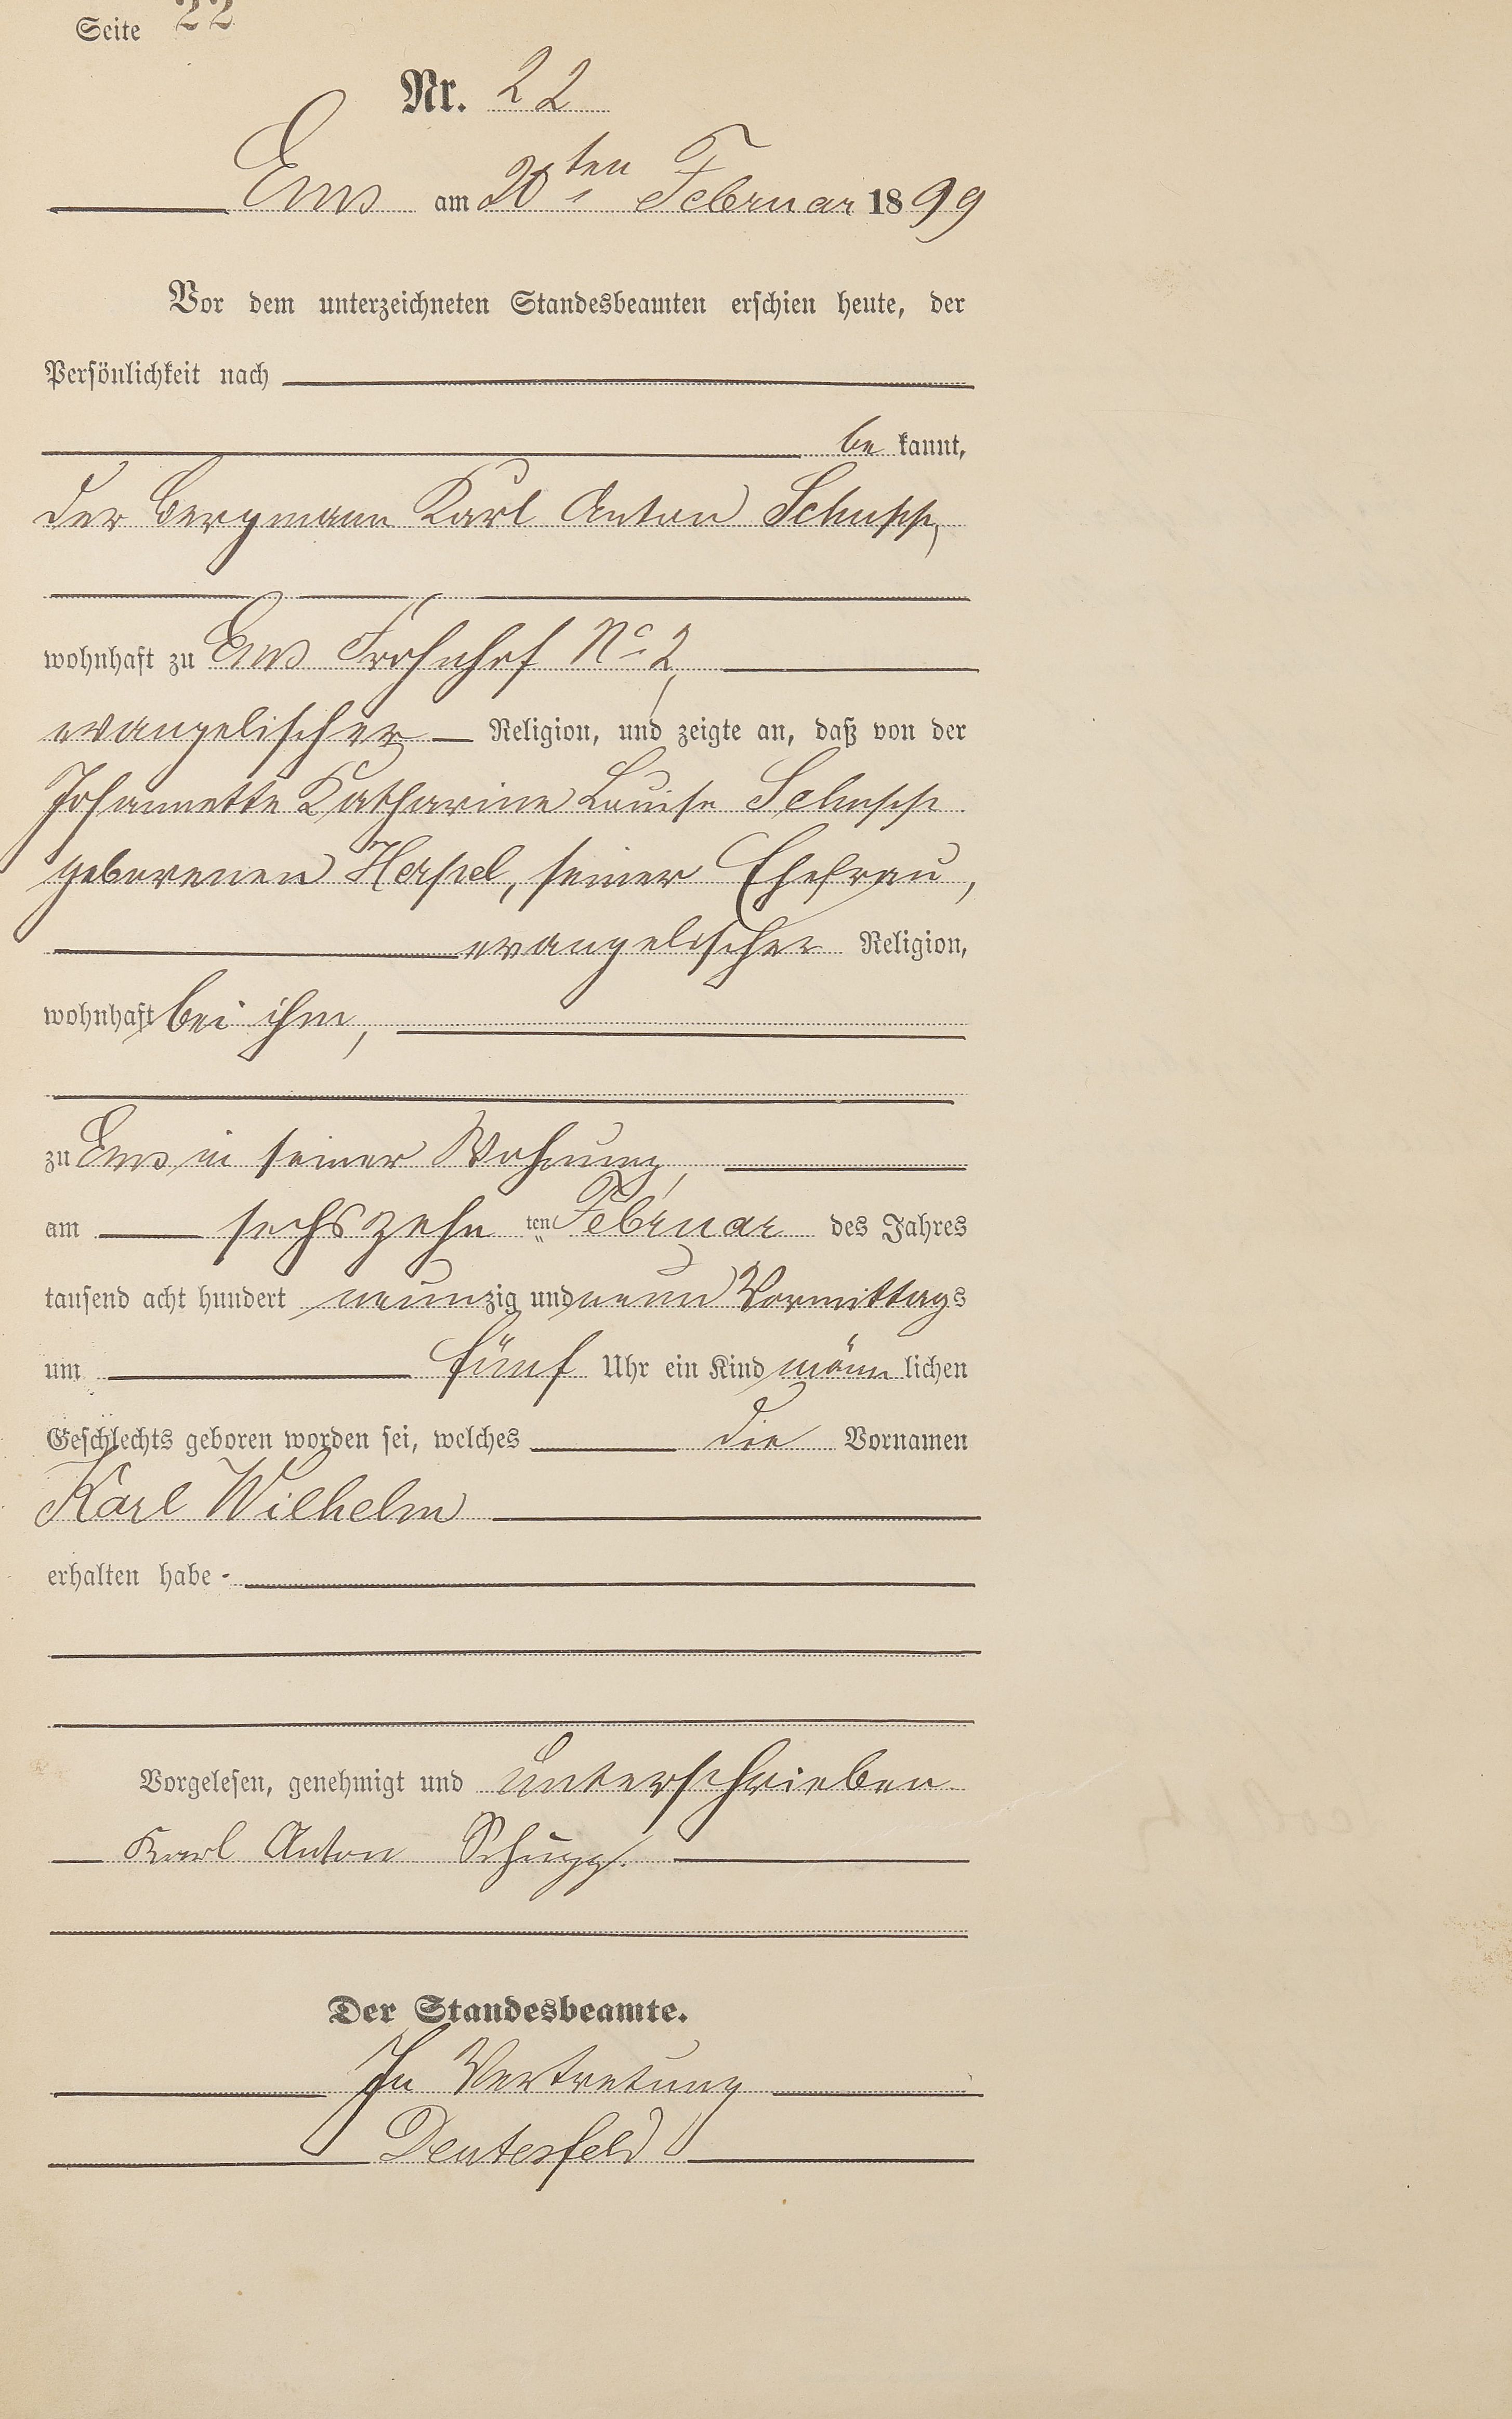 Seite 22
Nr. 22
Ems am 20ten Februar 1899
Vor dem unterzeichneten Standesbeamten erschien heute, der
Persönlichkeit nach
be kannt,
der Bergmann Karl Anton Schupp,
wohnhaft zu Ems Frohnhof No 2,
evangelischer Religion, und zeigte an, daß von der
Johannette Katharine Louise Schupp
geborenen Hespel, seiner Ehefrau,
evangelischer Religion,
wohnhaft bei ihm,
zu Ems in seiner Wohnung,
am sechszehn ten Februar des Jahres
tausend acht hundert neunzig und neun Vormittags
um fünf Uhr ein Kind männ lichen
Geschlechts geboren worden sei, welches die Vornamen
Karl Wilhelm
erhalten habe
Vorgelesen, genehmigt und unterschrieben
Karl Anton Schupp.
Der Standesbeamte.
In Vertretung
Deutesfeld